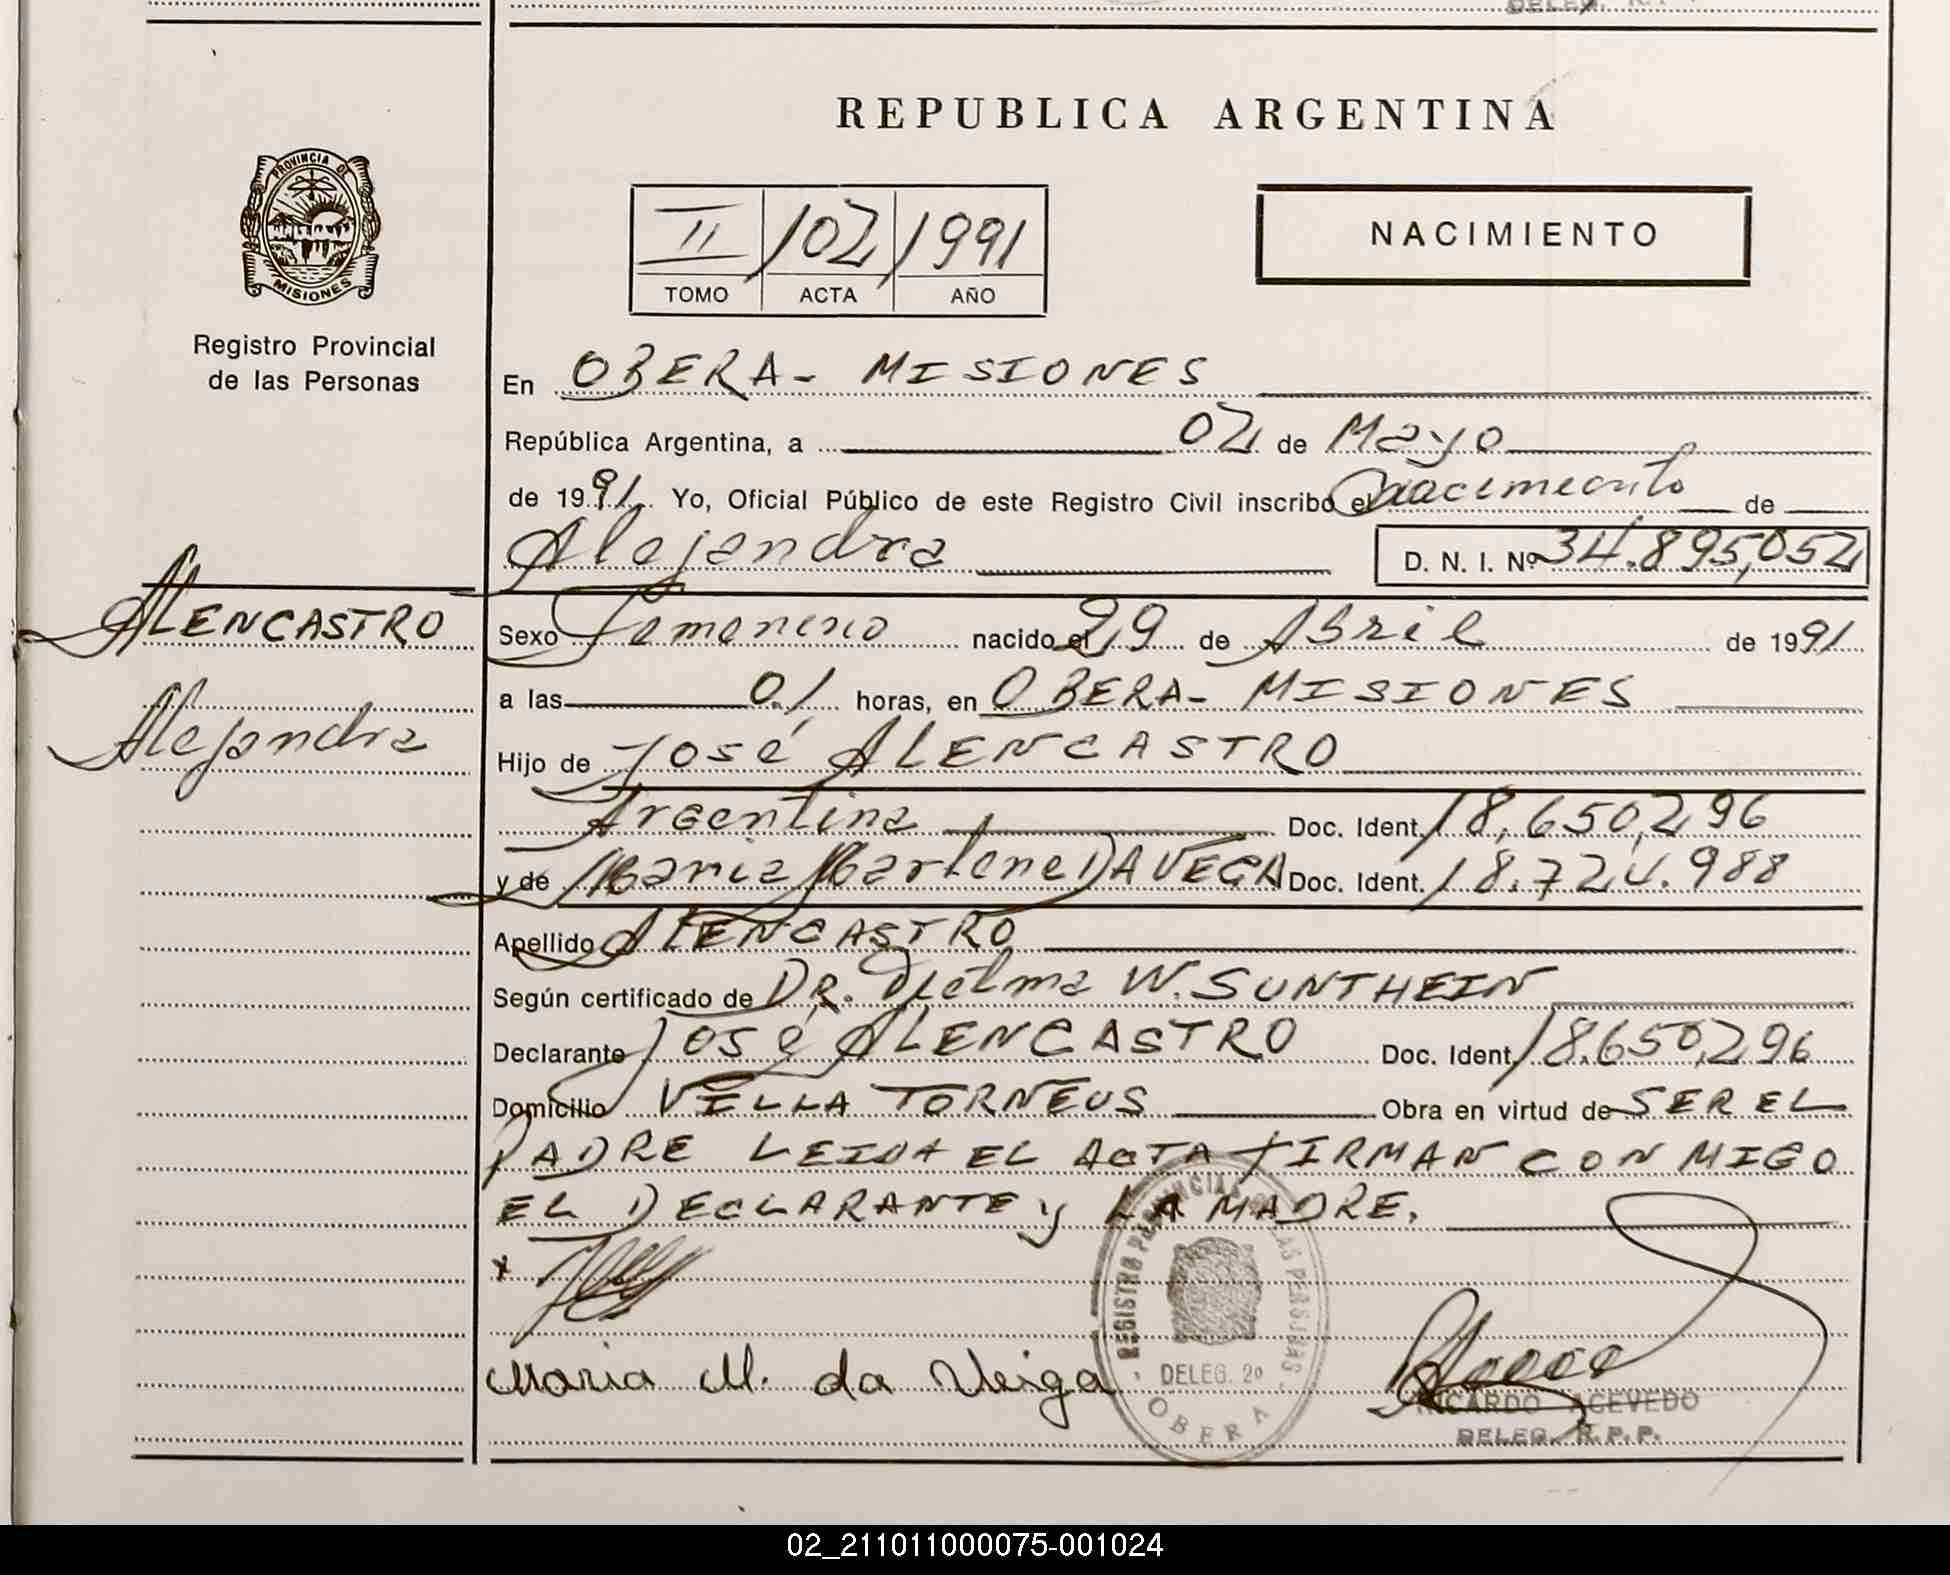 DELEG. R.
REPUBLICA ARGENTINA
PROVINCIA DE
MISIONES
Registro Provincial
de las Personas
II 102 1991
TOMO ACTA AÑO
NACIMIENTO
En OBERA - MISIONES
República Argentina, a 02 de Mayo
de 1991 Yo, Oficial Público de este Registro Civil inscribo el nacimiento de
Alejandra D. N. I. Nº 34.895,052
ALENCASTRO
Alejandra
Sexo Femenino nacido el 29 de Abril de 1991
a las 01 horas, en OBERA - MISIONES
Hijo de José ALENCASTRO
Argentina Doc. Ident. 18,650,296
y de Maria Marlene DA VEGA Doc. Ident. 18.724.988
Apellido ALENCASTRO
Según certificado de DR. W. SUNTHEIN
Declarante José ALENCASTRO Doc. Ident. 18.650,296
Domicilio VILLA TORNEUS Obra en virtud de SER EL
PADRE LEIDA EL ACTA FIRMAN CON MIGO
EL DECLARANTE y LA MADRE.
x
Maria M. da Veiga
REGISTRO PROVINCIAL DE LAS PERSONAS
DELEG. 2º
OBERA
RICARDO ACEVEDO
DELEG. R.P.P.
02_211011000075-001024